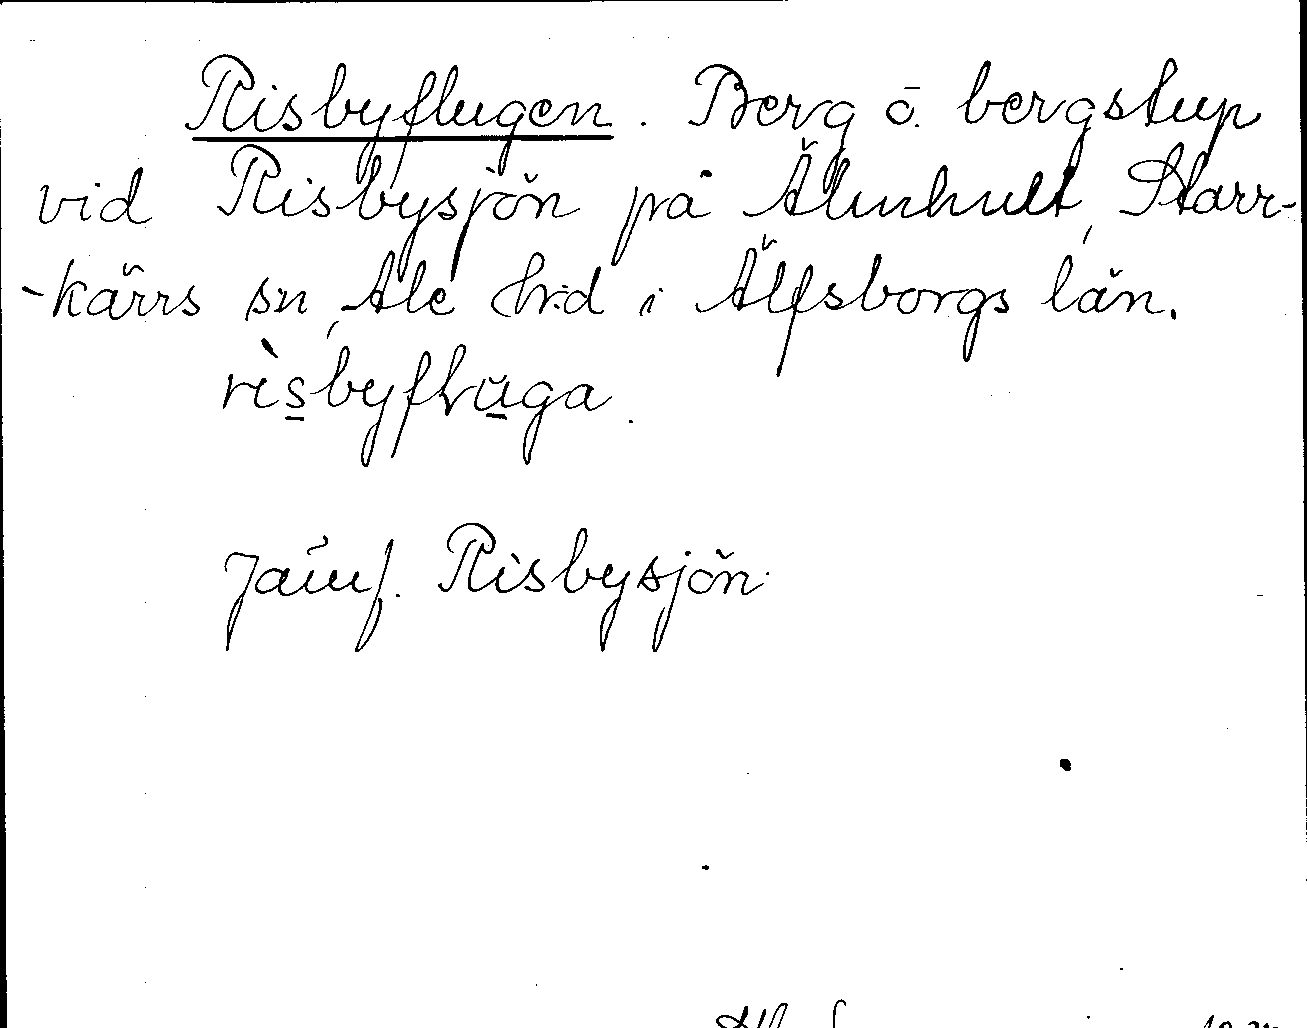 Risbyflugen. Berg o. bergstup
vid Risbysjön på Älmhult, Starr-
-kärrs sn, Ale hrd i Älfsborgs län.
rìsbyfluga.
Jämf. Risbysjön